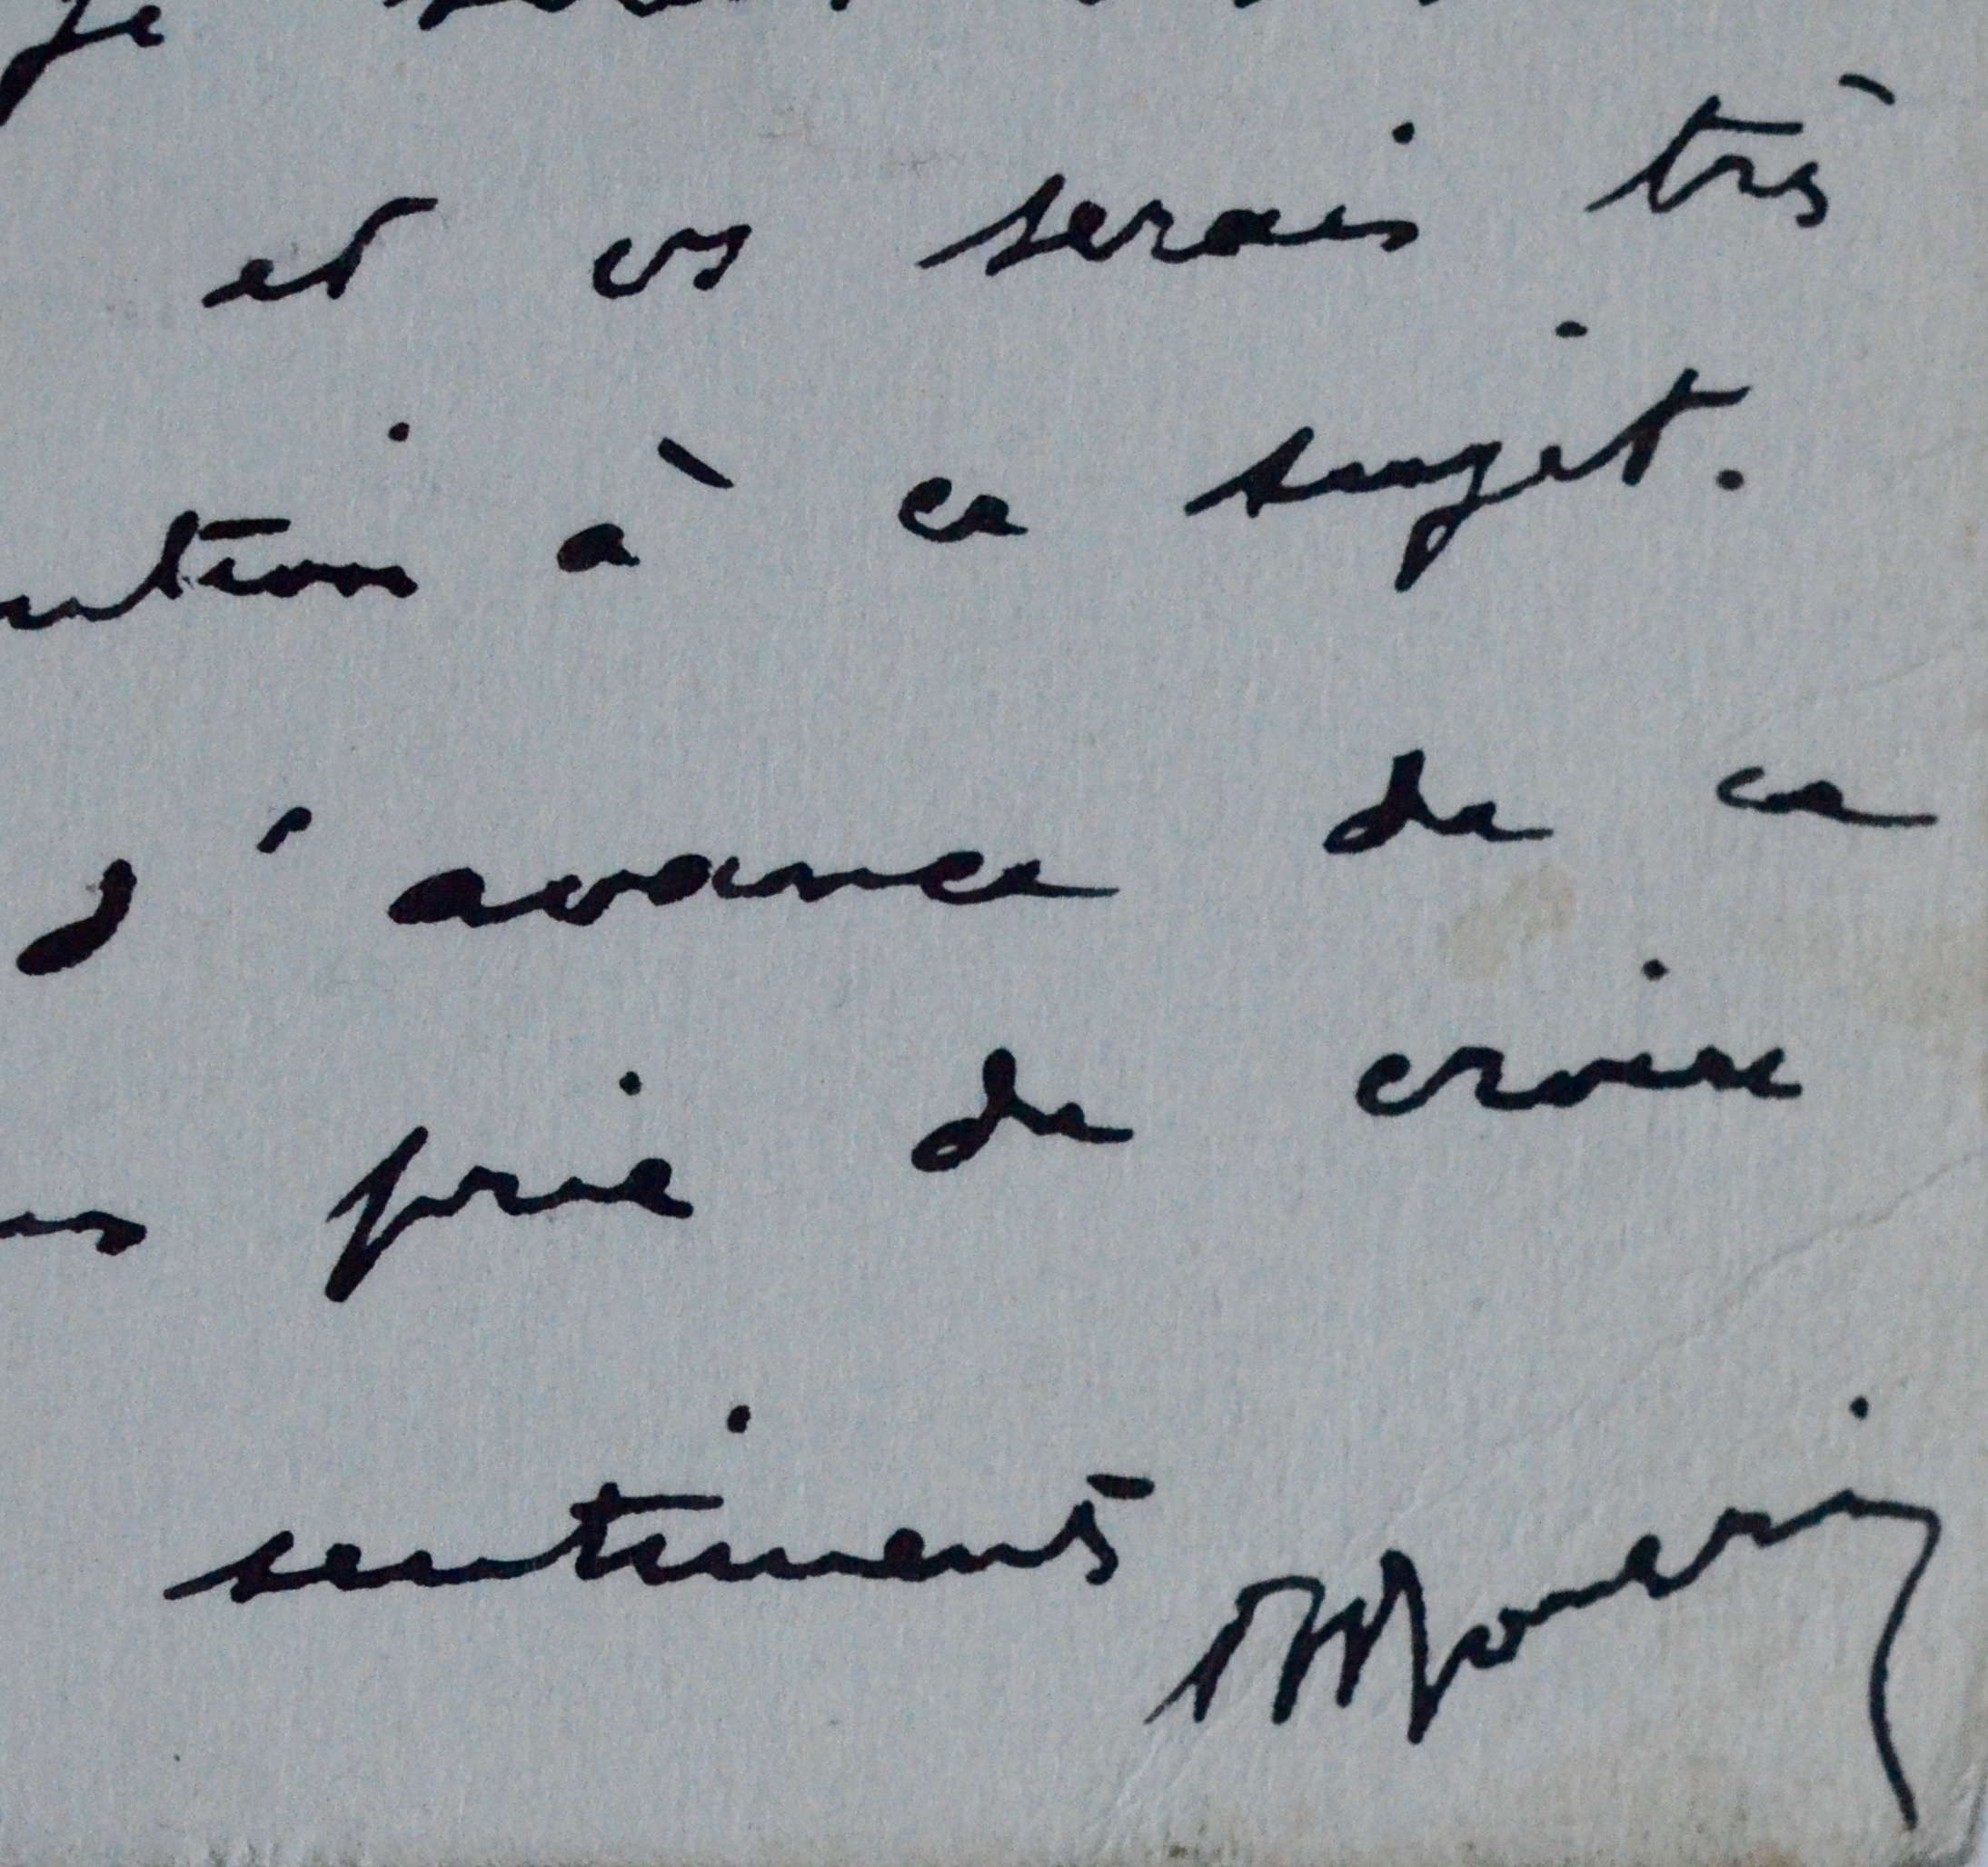 je
et vs serais très
à ce sujet.
d'avance de ce
prie de croire
sentiments